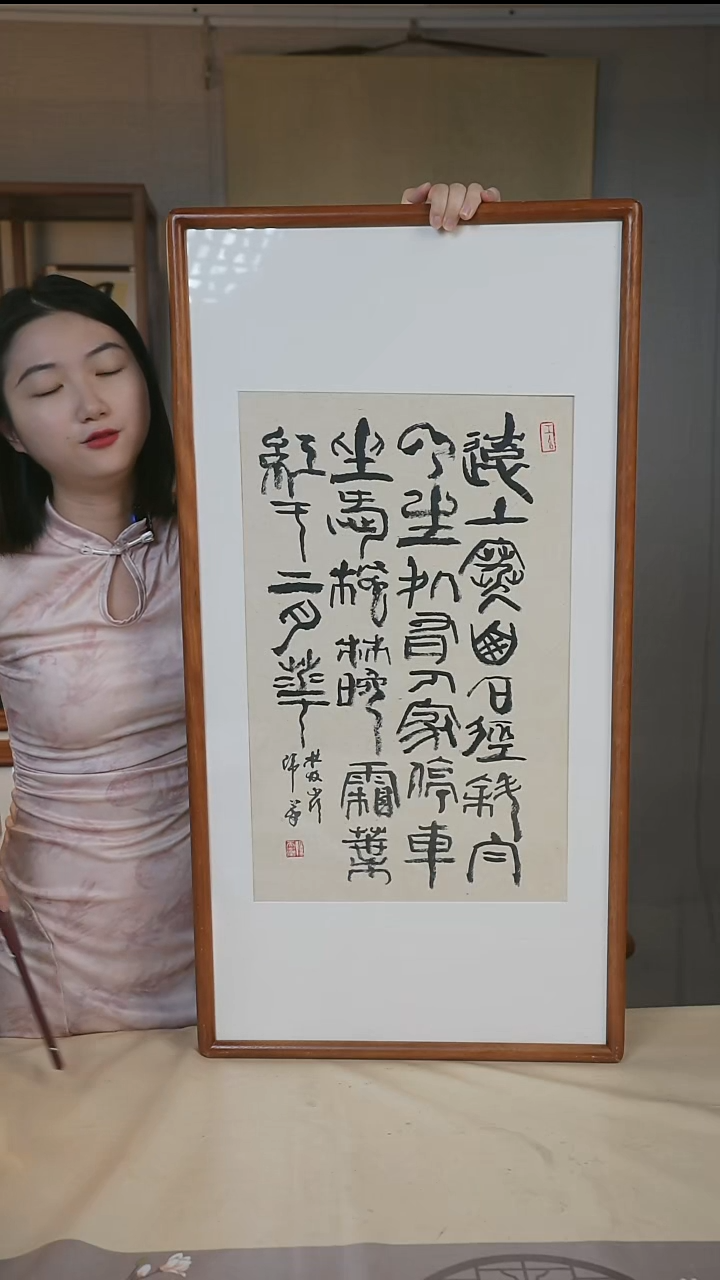 遠上寒山石徑斜白
云生処有人家停車
坐愛楓林晚霜葉
紅于二月華